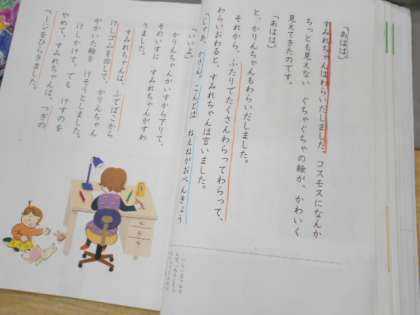 「あはは。」
すみれちゃんはわらいだしました。コスモスになんか
ちっとも見えない ぐちゃぐちゃの絵が、かわいく
見えてきたのです。
「あはは。」
と、かりんちゃんもわらいだしました。
それから、ふたりでたくさんわらってわらって、
わらいおわると、すみれちゃんは言いました。
「じゃあ、かりん。こんどは ねえねがおべんきょう
「いいよ。」
かりんちゃんがいすからおりて、
そのいすに すみれちゃんがすわ
りました。
すみれちゃんは、ふでばこから
けしごムを出して、かりんちゃん
がかいた絵を けそうとしました。
けしかけて、でも けすのを
やめて、すみれちゃんは、つぎの
ページをひらきました。